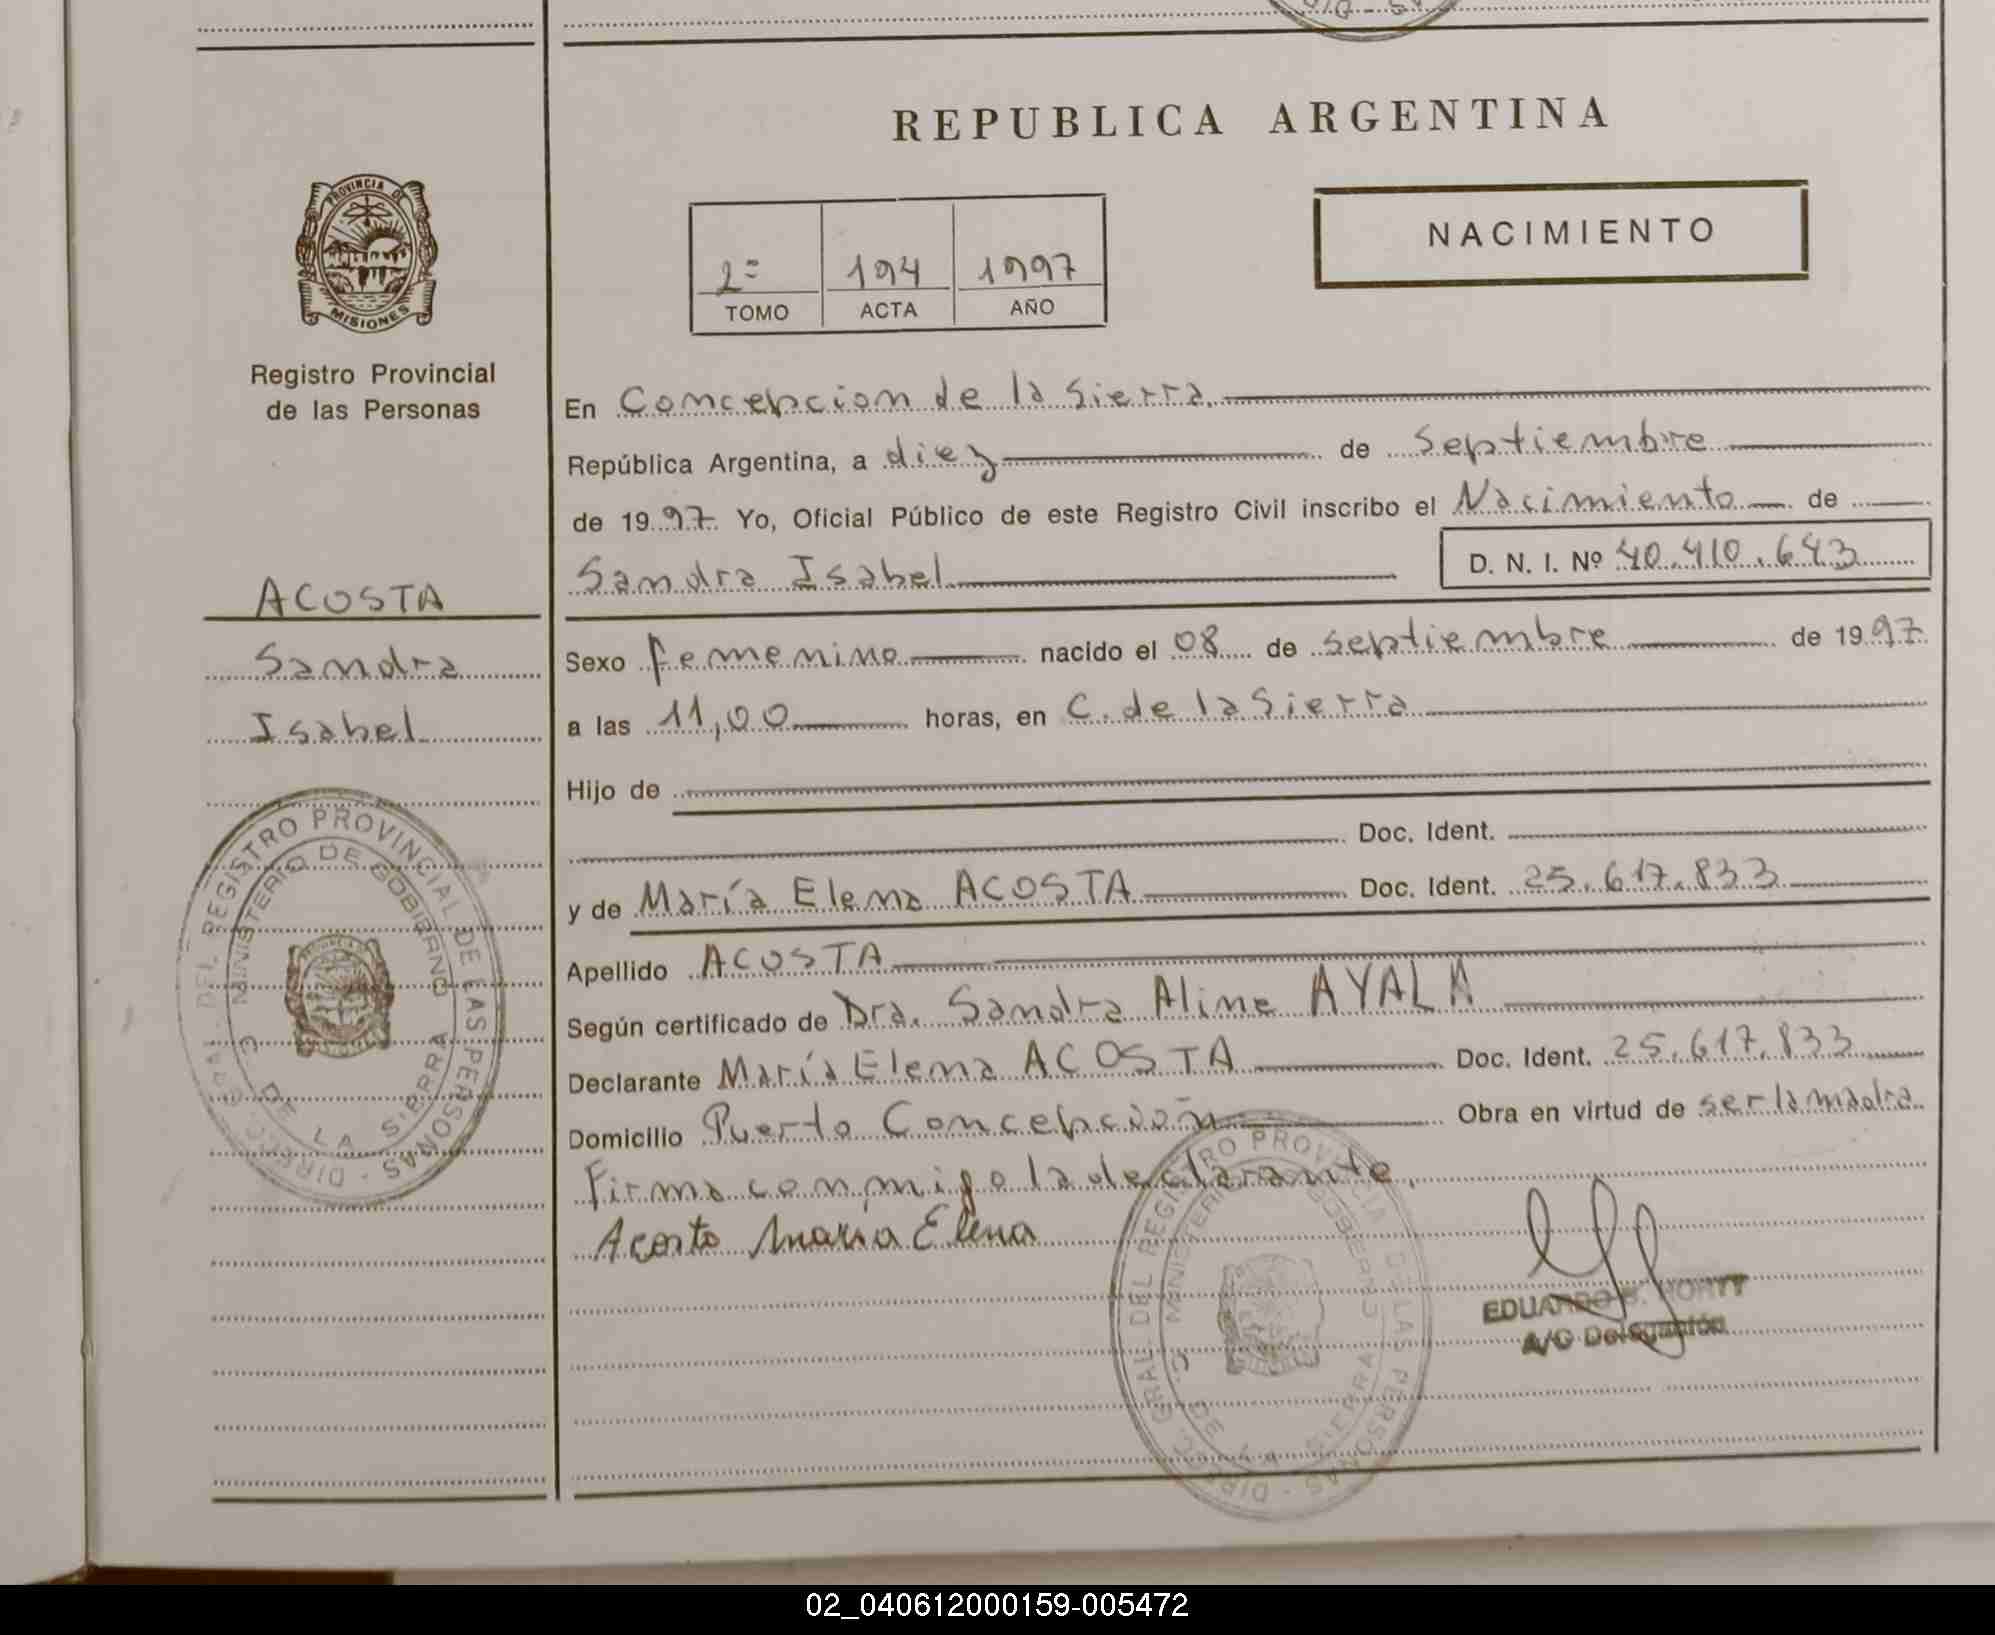 REPUBLICA ARGENTINA
PROVINCIA DE
MISIONES
Registro Provincial
de las Personas
NACIMIENTO
2º 194 1997
TOMO ACTA AÑO
En Concepcion de la Sierra
República Argentina, a diez de Septiembre
de 1997 Yo, Oficial Público de este Registro Civil inscribo el Nacimiento de
Sandra Isabel D. N. I. Nº 40.410.643
ACOSTA
Sandra
Isabel
Sexo femenino nacido el 08 de septiembre de 1997
a las 11,00 horas, en C. de la Sierra
Hijo de
Doc. Ident.
y de María Elena ACOSTA Doc. Ident. 25.617.833
Apellido ACOSTA
Según certificado de Dra. Sandra Aline AYALA
Declarante María Elena ACOSTA Doc. Ident. 25.617.833
Domicilio Puerto Concepción Obra en virtud de ser la madre
Firma conmigo la declarante.
Acosta Maria Elena
DIREC. GRAL. DEL REGISTRO PROVINCIAL DE LAS PERSONAS
MINISTERIO DE GOBIERNO
C. DE LA SIERRA
DIREC. GRAL. DEL REGISTRO PROVINCIAL DE LAS PERSONAS
MINISTERIO DE GOBIERNO
C. DE LA SIERRA
EDUARDO
A/C Delegación
02_040612000159-005472